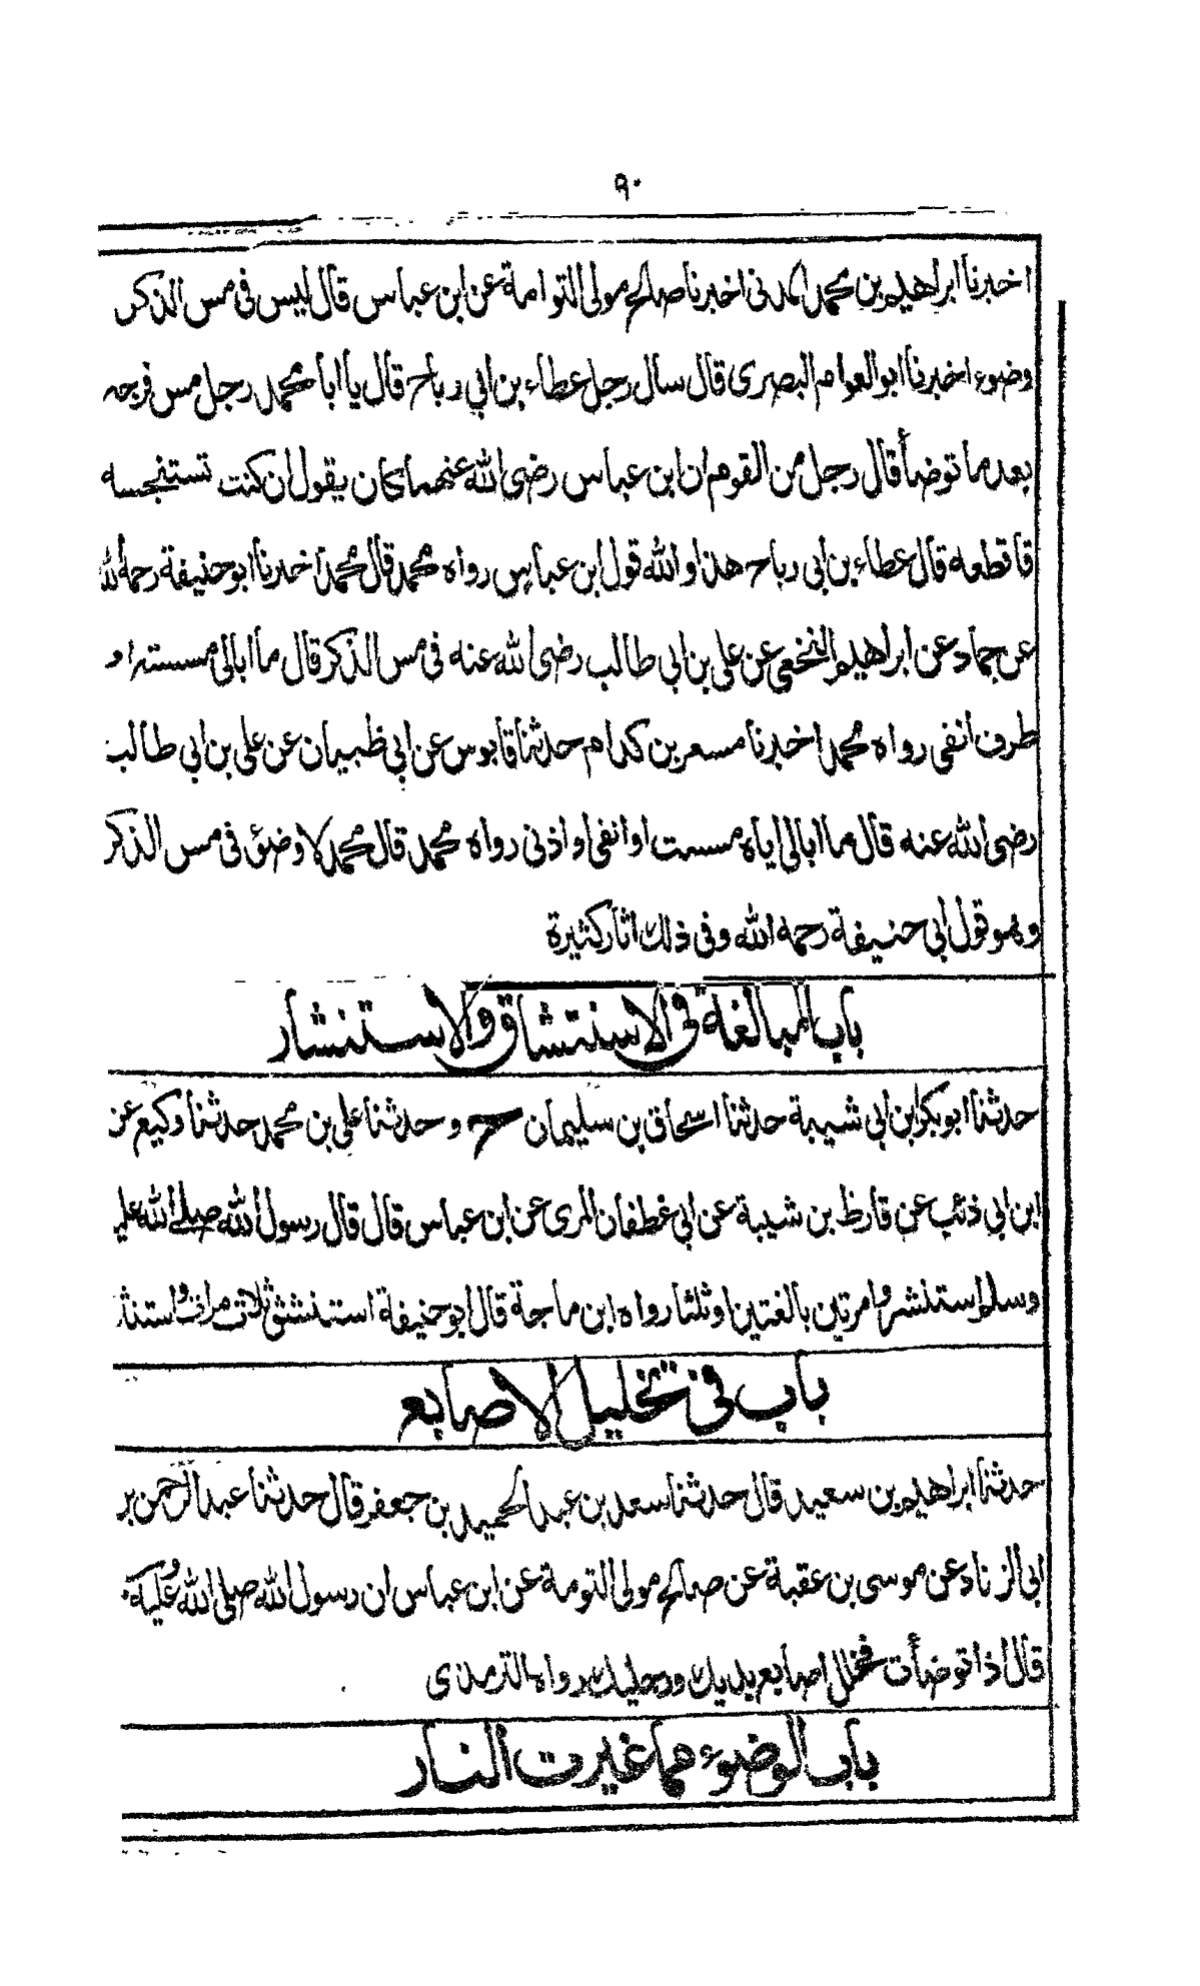 ٩٠
اخبرنا ابراهيم بن محمد المدنى اخبرنا صالح مولى التوامة عن ابن عباس قال ليس فى مس الذكر
وضوء اخبرنا ابو العوام البصرى قال سال رجل عطاء بن ابي رباح قال يا ابا محمد رجل مس فرجه
بعد ما توضأ قال رجل من القوم ان ابن عباس رضى الله عنهما كان يقول ان كنت تستنجسه
فاقطعه قال عطاء بن ابى رباح هذا والله قول ابن عباس رواه محمد قال محمد اخبرنا ابو حنيفة رحمه الله
عن حماد عن ابراهيم النخعى عن على بن ابي طالب رضى الله عنه فى مس الذكر قال ما ابالى مسسته او
طرف انفى رواه محمد اخبرنا مسعر بن كدام حدثنا قابوس عن ابي ظبيان عن على بن ابي طالب
رضى الله عنه قال ما ابالى اياه مسست او انفى او اذنى رواه محمد قال محمد لا وضوء فى مس الذكر
وهو قول ابى حنيفة رحمه الله وفى ذلك اثار كثيرة
باب المبالغة فى الاستنشاق والاستنشار
حدثنا ابوبكر ابن ابى شيبة حدثنا اسحاق بن سليمان ح و حدثنا على بن محمد حدثنا وكيع عن
ابن ابى ذئب عن قارظ بن شيبة عن ابي غطفان المرى عن ابن عباس قال قال رسول الله صلى الله عليه
وسلم استنشروا مرتين بالغتين او ثلثا رواه ابن ماجة قال ابو حنيفة استنشق ثلاث مرات واستنثر
باب فى تخليل الاصابع
حدثنا ابراهيم بن سعيد قال حدثنا سعد بن عبد الحميد بن جعفر قال حدثنا عبد الرحمن بن
ابى الزناد عن موسى بن عقبة عن صالح مولى التومة عن ابن عباس ان رسول الله صلى الله عليه
قال اذا توضأت فخلل اصابع يديك ورجليك رواه الترمذى
باب الوضوء مما غيرت النار